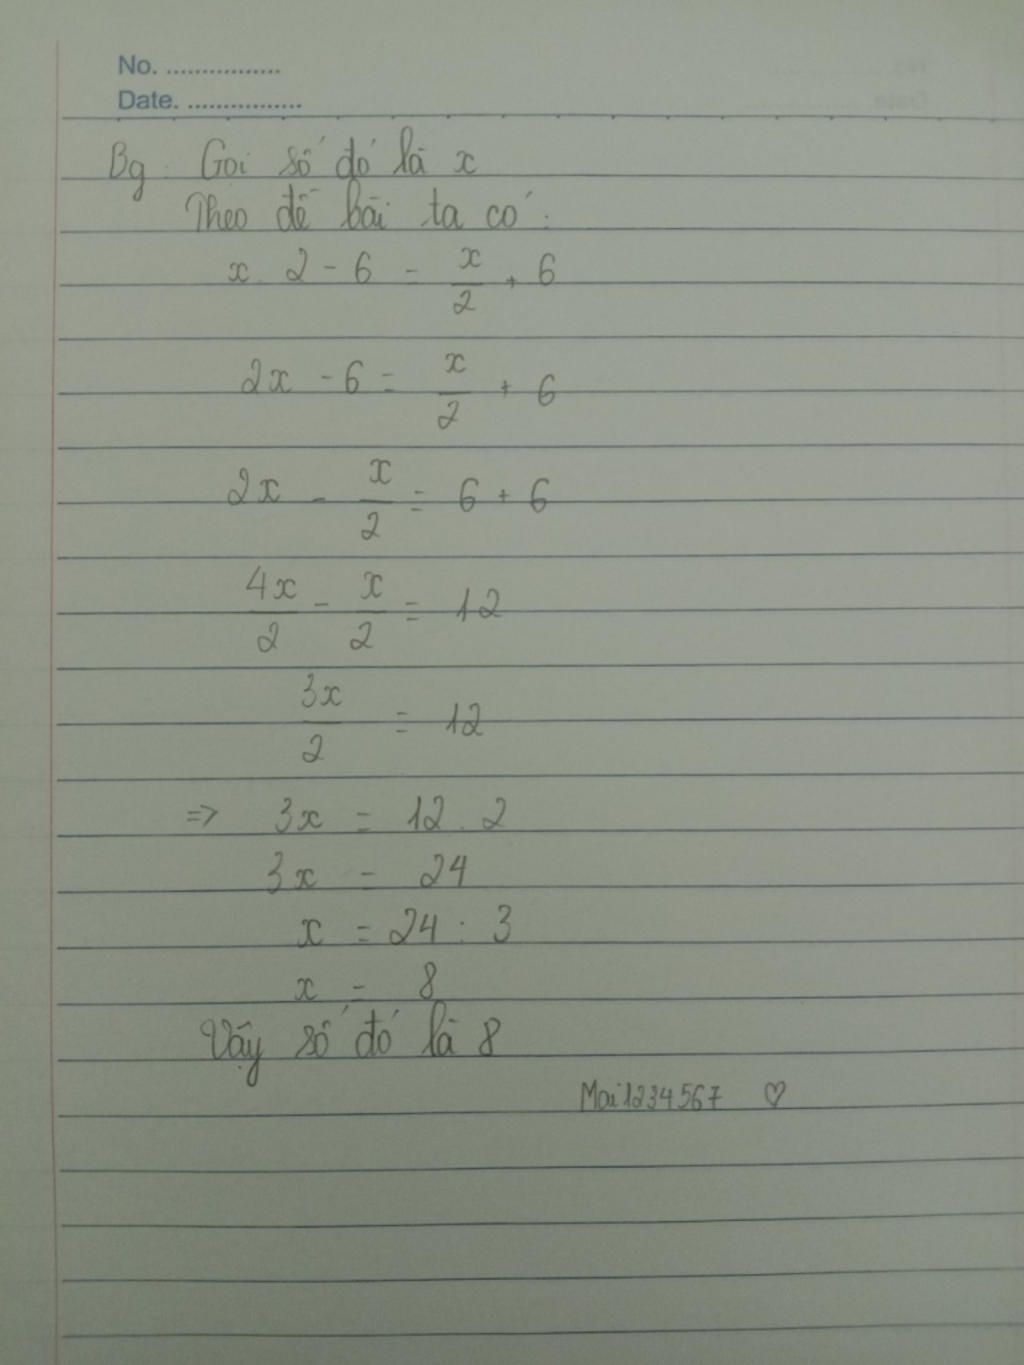 No. ................
Date. ................
Bg: Gọi số đó là x
Theo đề bài ta có:
x . 2 - 6 = x/2 + 6
2x - 6 = x/2 + 6
2x - x/2 = 6 + 6
4x/2 - x/2 = 12
3x/2 = 12
=> 3x = 12 . 2
3x = 24
x = 24 : 3
x = 8
Vậy số đó là 8
Mai1234567 ♡